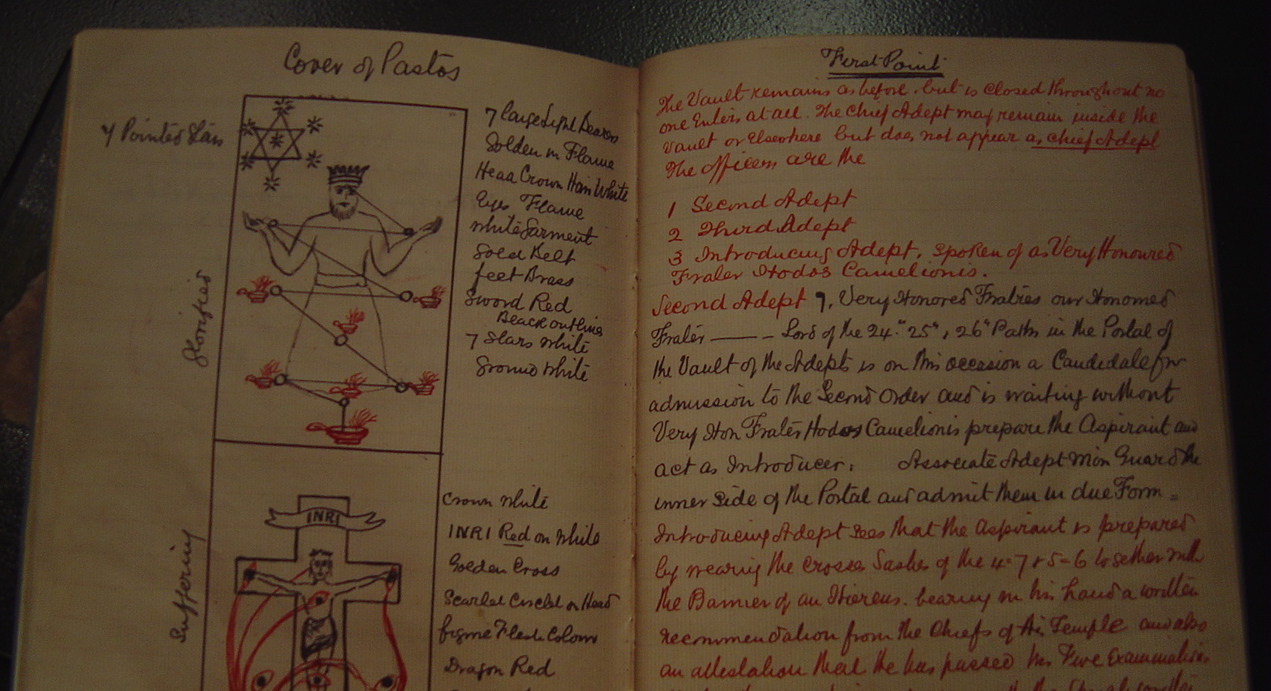 Cover of Pastos
7 Pointed Star
7 large Light Bearers
Golden in Flame
Head Crown Hair White
Eyes Flame
White Garment
Gold Belt
feet Brass
Sword Red
Black outline
7 Stars White
Ground White
Glorified
crown white
INRI
INRI Red on white
Golden Cross
Scarlet Circlet on Head
figure Flesh Colour
Dragon Red
Suffering
First Point
The Vault remains as before, but is closed throughout no
one Enters at all. The Chief Adept may remain inside the
Vault or Elsewhere but does not appear as chief Adept
The Officers are the
1 Second Adept
2 Third Adept
3 Introducing Adept, Spoken of as Very Honoured
Frater Hodos Camelionis.
Second Adept 7, Very Honored Fratres our Honored
Frater ——— - Lord of the 24th 25th, 26th Paths in the Portal of
the Vault of the Adepts is on this occasion a Candidate for
admission to the Second Order and is waiting without
Very Hon Frater Hodos Camelionis prepare the Aspirant and
act as Introducer. Associate Adept Min Guard the
inner side of the Portal and admit them in due Form =
Introducing Adept sees that the Aspirant is prepared
by wearing the Crossed Sashes of the 4-7 & 5-6 together with
the Banner of an Hiereus. bearing in his hand a written
recommendation from the Chiefs of his Temple and also
an attestation that he has passed his Five Examinations